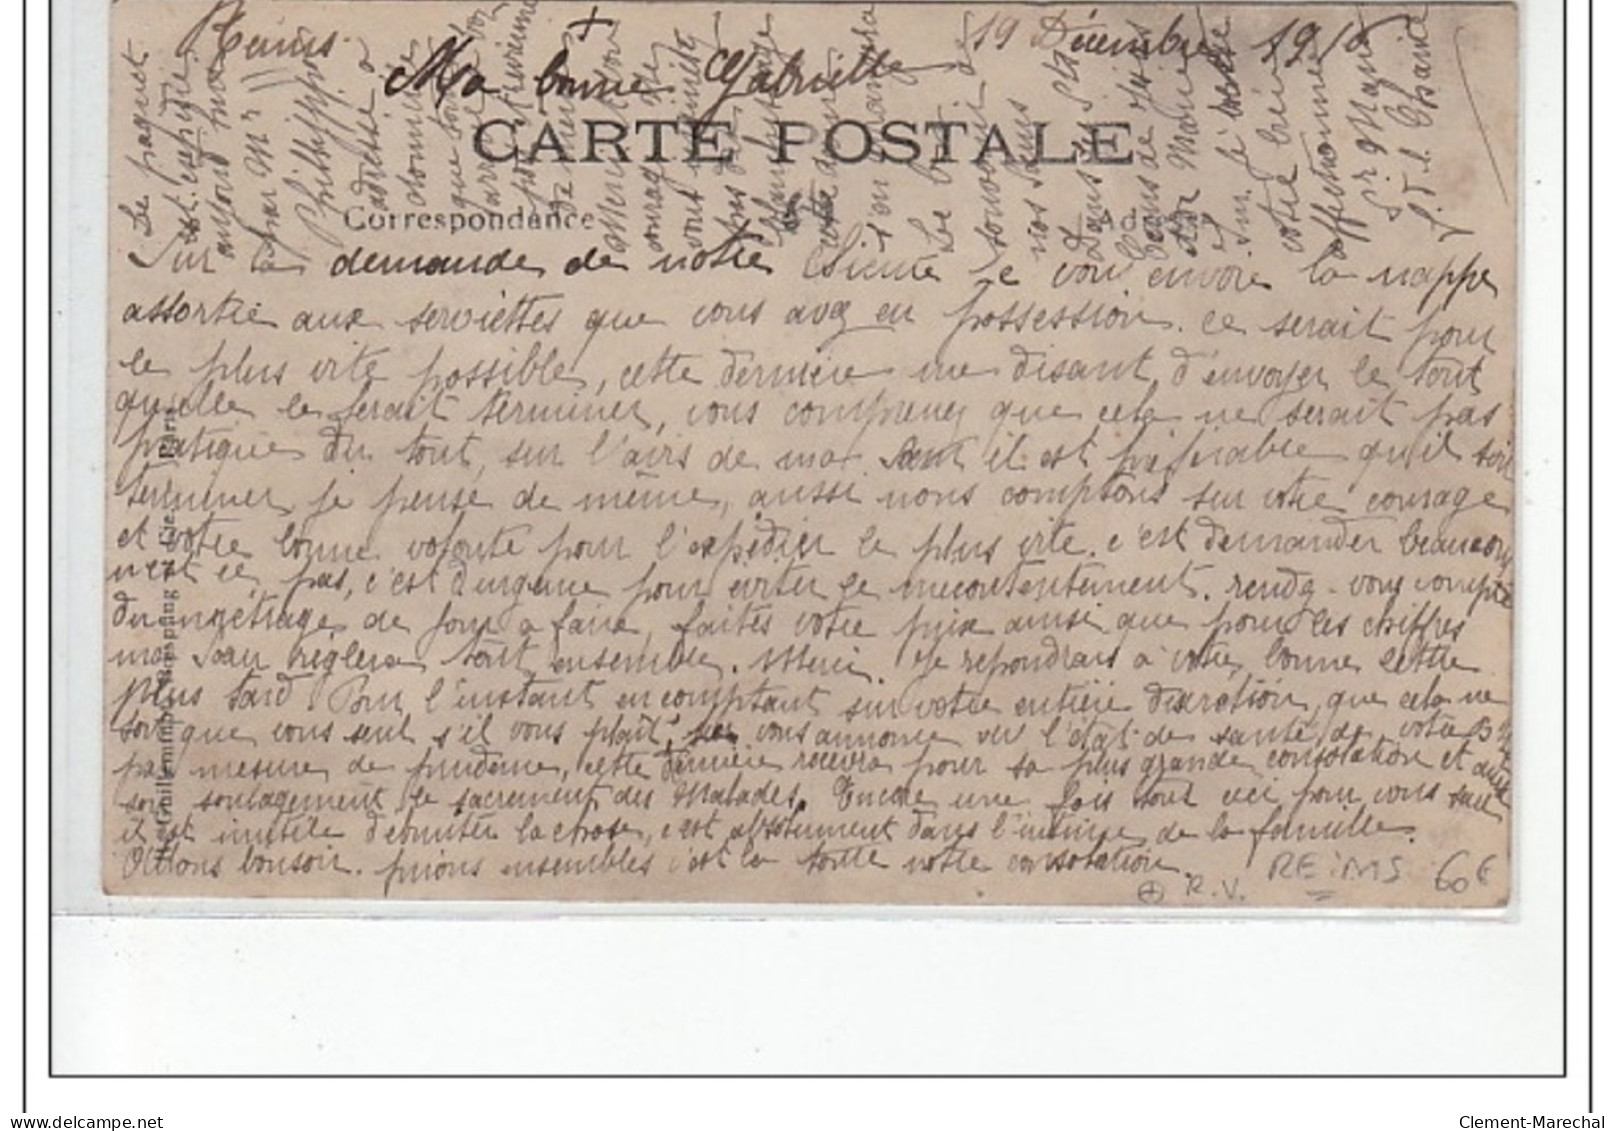 Reims 19 Décembre 1916
Ma bonne Gabrielle
CARTE POSTALE
Correspondance
Sur la demande de notre cliente je vous envoie la nappe
assortie aux serviettes que vous avez en possession. ce serait pour
le plus vite possible, cette dernière me disant d'envoyer le tout
qu'elle le ferait terminer, vous comprenez que cela ne serait pas
pratique du tout, sur l'avis de ma Sœur il est préférable qu'il soit
terminer je pense de même, aussi nous comptons sur votre courage
et votre bonne volonté pour l'expédier le plus vite. c'est demander beaucoup
n'est ce pas, c'est d'urgence pour éviter le mécontentement. rendez-vous compte
du métrage de jour a faire, faites votre prix ainsi que pour les chiffres
ma Sœur reglera tout ensemble. Merci. Je repondrais à votre bonne lettre
plus tard Pour l'instant en comptant sur votre entière discrétion, que cela ne
soit que vous seul s'il vous plait, vous annonce l'état de santé de votre
par mesure de prudence, cette dernière recevra pour sa plus grande consolation et
son soulagement le sacrement des Malades. Encore une fois tout ceci pour vous seul
il est inutile d'ébruiter la chose, c'est absolument dans l'intime de la famille.
Allons bonsoir. prions ensembles c'est la toute notre consolation.
R.V. REIMS 60€
Le paquet
est expédié
par Mr
Philippot
adressé à
que
souvenir
nos
votre bien
affectionnée
Clement-Marechal